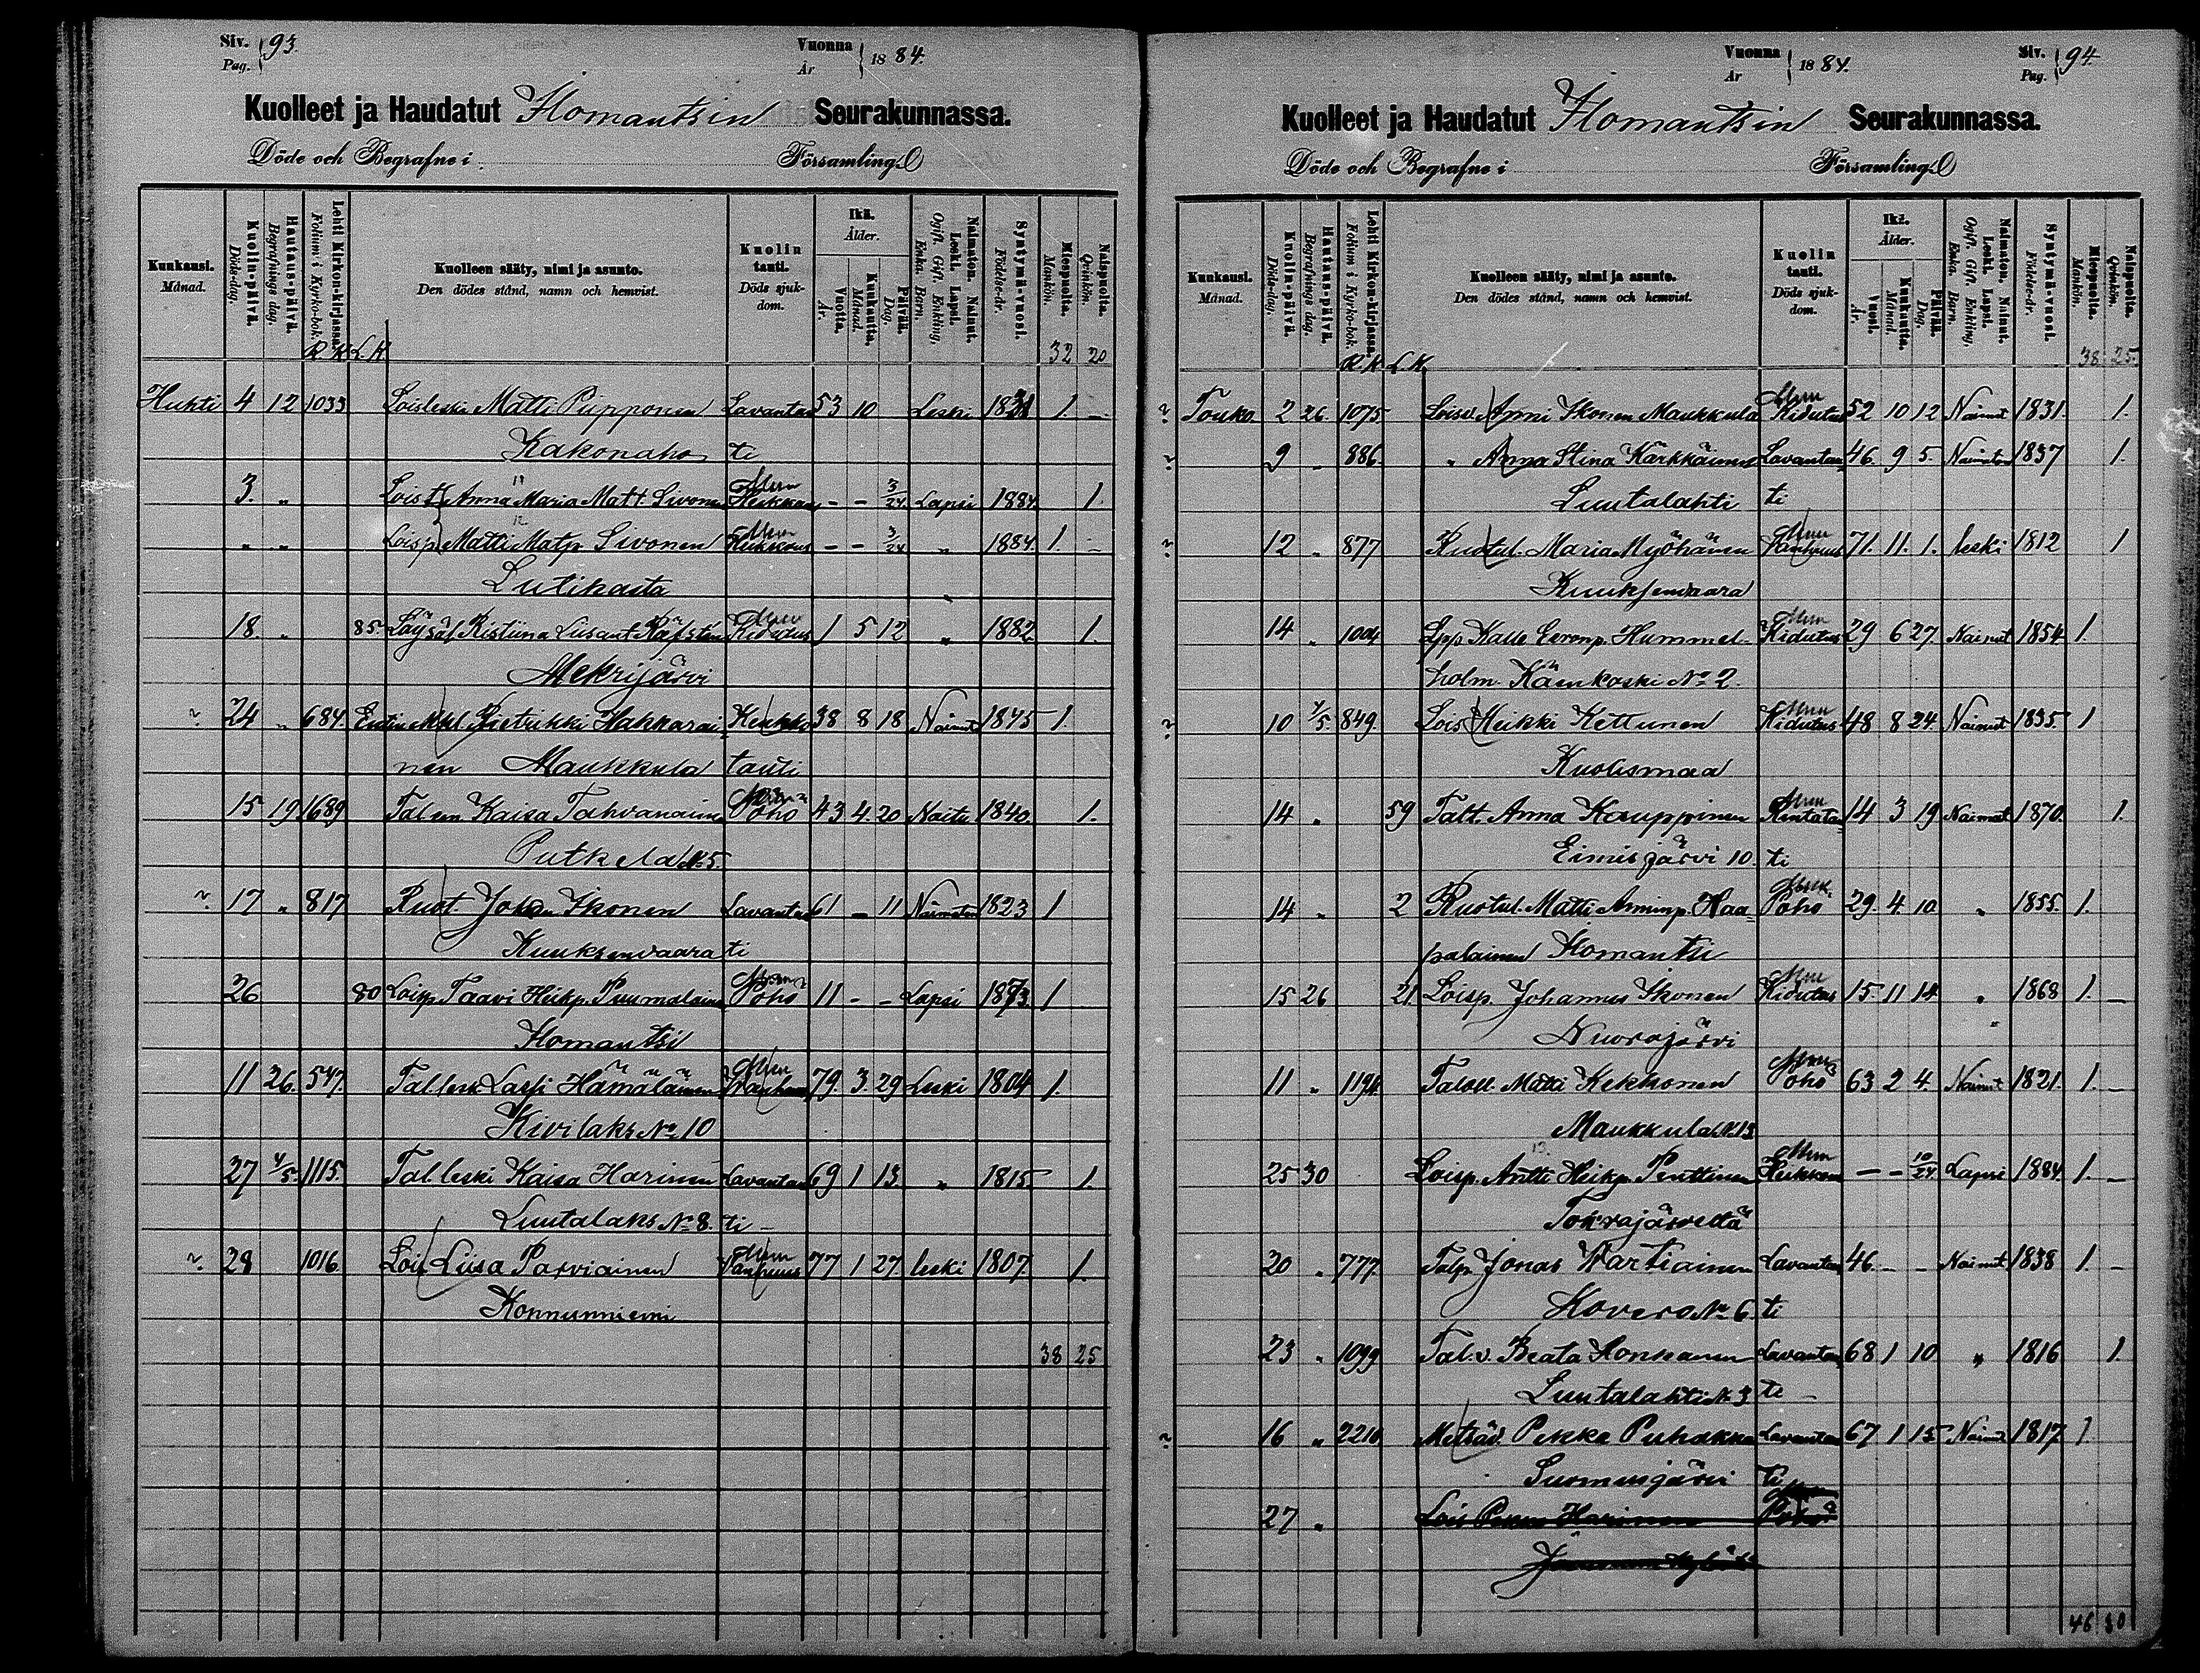 Siv. Pag. 93.
Vuonna År 1884.
Kuolleet ja Haudatut Ilomantsin Seurakunnassa.
Döde och Begrafne i Församling.
Kuukausi. Månad.
Kuolin-päivä. Döds-dag.
Hautaus-päivä. Begrafnings dag.
Lehti Kirkon-kirjassa. Folium i Kyrko-bok.
Kuolleen sääty, nimi ja asunto. Den dödes stånd, namn och hemvist.
Kuolin tauti. Döds sjukdom.
Ikä. Ålder.
Vuotta. År.
Kuukautta. Månad.
Päivää. Dag.
Naimaton. Nainut. Leski. Lapsi. Ogift. Gift. Enkling. Enka. Barn.
Syntymä-vuosi. Födelse-år.
Miespuolta. Mankön.
Naispuolta. Qvinkön.
R.K L.K 32 20
Huhti 4 12 1033 Loisleski Matti Piipponen Lavantau 53 10 Leski 1831 1. -
Kakonaho ti
3. " Lois t. Anna Maria Matt. Sivonen Heikkous - - 3/24 Lapsi 1884. 1.
" " Lois p. Matti Matp. Sivonen Heikkous - - 3/24 " 1884. 1. -
Lutikasta
18. " 85. Kristiina Kidutus 1 5 12 " 1882 1.
Mekrijärvi
24 " 684. Pietrikki Hakkarai Keuhko 38 8 18 Nainut 1845 1.
nen Maukkula tauti
15 19 1689 Tal. em. Kaisa Tahvanainen Poho 43 4. 20 Naitu 1840. 1.
Putkela № 5.
17 " 817 Ruot. Johan Ikonen Lavantau 61 - 11 Naimaton 1823 1
Kuuksenvaara ti
26 80 Loisp. Taavi Heikp. Puumalainen Poho 11 - - Lapsi 1873. 1
Ilomantsi
11 26. 547. Tal. lesk. Lassi Hämäläinen Wanhuus 79. 3. 29 Leski 1804 1.
Kivilaks № 10
27 4/5. 1115. Tal. leski Kaisa Harinen Lavantau 69 1 13. " 1815. 1.
Luutalaks № 8. ti -
28 1016 Lois Liisa Parviainen Vanhuus 77 1 27. leski 1807 1.
Konnunniemi
38 25
Vuonna År 1884.
Siv. Pag. 94.
Kuolleet ja Haudatut Ilomantsin Seurakunnassa.
Döde och Begrafne i Församling.
Kuukausi. Månad.
Kuolin-päivä. Döds-dag.
Hautaus-päivä. Begrafnings dag.
Lehti Kirkon-kirjassa. Folium i Kyrko-bok.
Kuolleen sääty, nimi ja asunto. Den dödes stånd, namn och hemvist.
Kuolin tauti. Döds sjukdom.
Ikä. Ålder.
Vuosi. År.
Kuukautta. Månad.
Päivää. Dag.
Naimaton. Nainut. Leski. Lapsi. Ogift. Gift. Enkling. Enka. Barn.
Syntymä-vuosi. Födelse-år.
Miespuolta. Mankön.
Naispuolta. Qvinkön.
R.K L.K. 38. 25.
Touko. 2 26 1075. Loisv. Anni Ikonen Maukkula Kidutus 52 10 12 Nainut 1831. 1.
9 " 886. " Anna Stina Kärkkäinen Lavantau 46. 9 5. Naimaton 1837 1.
Luutalahti ti
12 " 877 Ruotul. Maria Myöhänen Vanhuus 71. 11. 1. leski 1812 1
Kuuksenvaara
14 " 1004 Kalle Eeronp. Hummel- Kidutus 29 6 27. Nainut 1854 1.
holm. Känkoski № 2.
10 4/5. 849. Lois Heikki Kettunen Kidutus 48 8 24. Nainut 1835. 1
Kuolismaa
14 " 59 Talt. Anna Kauppinen Rintatau 14 3 19 Naimat 1870. 1.
Eimisjärvi 10. ti
14 " 2 Ruotul. Matti Haa- Poho 29. 4. 10 " 1855. 1.
palainen Ilomantsi
15 26 21 Loisp. Johannes Ikonen Kidutus 15. 11 14 " 1868 1. -
Nuorajärvi
11 " 1194. Matti Kekkonen Poho 63 2 4. Nainut 1821. 1. -
Maukkula № 13
25 30 Loisp. Antti Heikp. Penttinen Heikkous - - 10/24 Lapsi 1884. 1. -
Tokrajärveltä
20 " 777. Talp. Jonas Wartiainen Lavantau 46. - - Nainut 1838 1. -
Kovero № 6. ti
23 " 1099 Tal. v. Beata Honkanen Lavantau 68 1 10 " 1816 1.
Luutalahti № 3 ti -
16 " 2210 Pekka Puhakka Lavantau 67 1 15 Nainut 1817 1
Suomusjärvi ti
27 " Lois Harinen
46 30